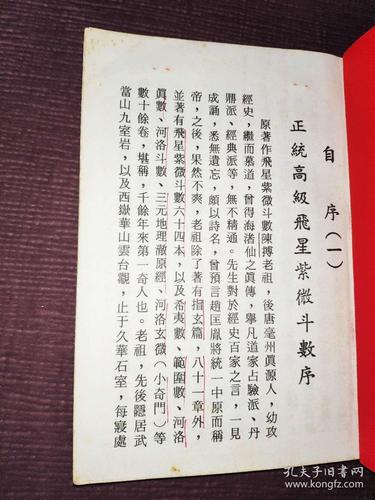 自序(一)
正統高級飛星紫微斗數序
原著作飛星紫微斗數陳摶老祖，後唐毫州眞源人，幼攻
經史，繼而慕道，曾得海渚仙之眞傳，舉凡道家占驗派、丹
鼎派、經典派等，無不精通。先生對於經史百家之言，一見
成誦，悉無遺忘，頗以詩名，曾預言趙匡胤將統一中原而稱
帝，之後，果然不爽，老祖除了著有指玄篇，八十一章外，
並著有飛星紫微斗數六十四本，以及希夷數、範圍數、河洛
眞數、河洛斗數、三元地理蔽原經、河洛玄微(小奇門)等
數十餘卷，堪稱，千餘年來第一奇人也。老祖，先後隱居武
當山九室岩，以及西嶽華山雲台觀，止于久華石室，每寢處
孔夫子旧书网
www.kongfz.com